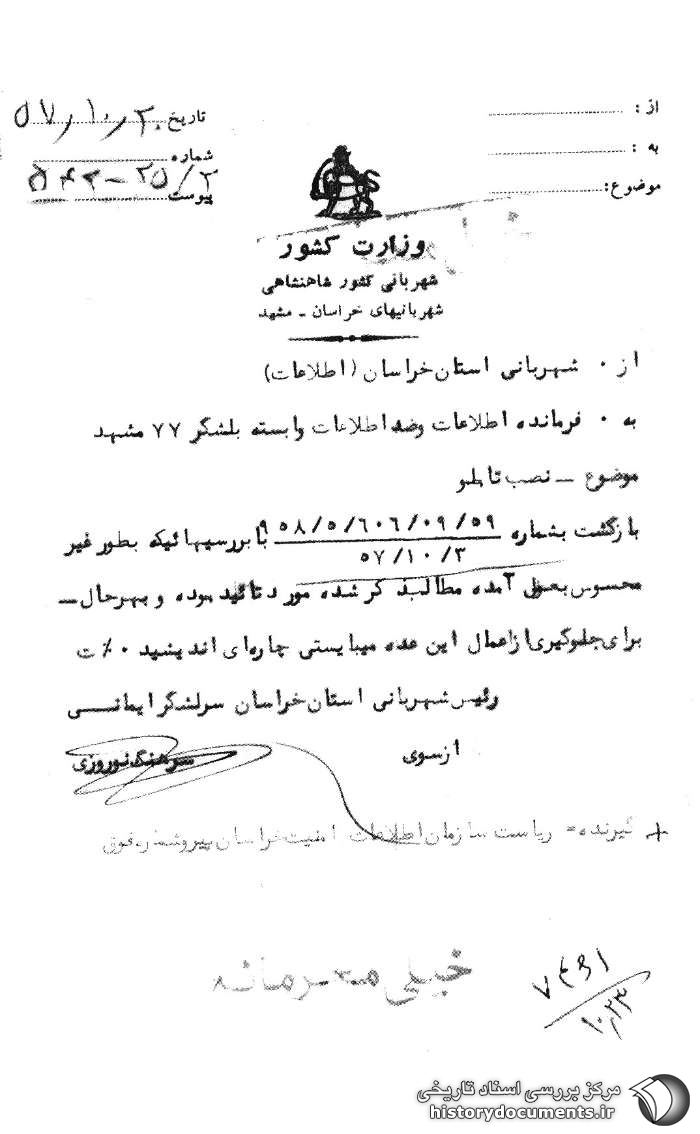 از :
به :
موضوع:
تاریخ ۵۷/۱۰/۲۰
شماره
۵۴۲-۲۵/۲
پیوست
وزارت کشور
شهربانی کشور شاهنشاهی
شهربانیهای خراسان - مشهد
از ۰ شهربانی استان خراسان (اطلاعات)
به ۰ فرمانده اطلاعات وضد اطلاعات وابسته بلشگر ۷۷ مشهد
موضوع – نصب تابلو
بازگشت بشماره ۹۵۸/۵/۶۰۶/۰۹/۵۹ با بررسیهائیکه بطور غیر
۵۷/۱۰/۳
محسوس بعمل آمده مطالب ذکر شده مورد تائید بوده و بهرحال –
برای جلوگیری از اعمال این عده میبایستی چاره‌ای اندیشید ۰٪ ت
رئیس شهربانی استان خراسان سرلشگر ایمانی
ازسوی
سرهنگ نوروزی
+ گیرنده = ریاست سازمان اطلاعات امنیت خراسان پیروشماره فوق
خیلی محرمانه
۱۰/۲۳
مرکز بررسی اسناد تاریخی
historydocuments.ir